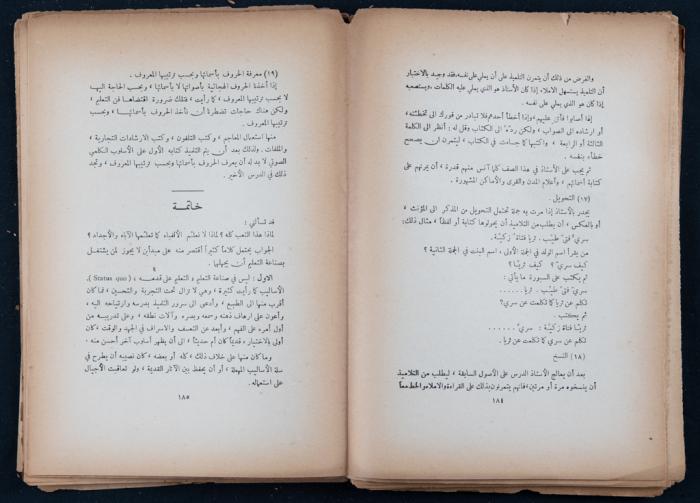 والغرض من ذلك أن يتمرن التلميذ على أن يملي على نفسه، فقد وجد بالاختبار
أن التلميذ يستسهل الاملاء إذا كان الأستاذ هو الذي يملي عليه الكلمات، ويستصعبه
إذا كان هو الذي يملي على نفسه.
إذا أساءوا فأثن عليهم، وإذا أخطأ أحدهم فلا تبادر من فورك الى تخطئته،
أو ارشاده الى الصواب، ولكن ردّه الى الكتاب وقل له: أنظر الى الكلمة
الثالثة أو الرابعة، واكتبها كما جاءت في الكتاب، ليتمرن ان يصحح
خطأه بنفسه.
ثم يجب على الأستاذ في هذا الصف كلما آنس منهم قدرة، أن يمرنهم على
كتابة أسمائهم، وأعلام المدن والقرى والأماكن المشهورة.
(١٧) التحويل.
يجدر بالأستاذ إذا مرت به جملة تحتمل التحويل من المذكر الى المؤنث،
أو بالعكس، أن يطلب من التلاميذ أن يحولوها كتابة أو لفظاً، مثال ذلك:
سريّ فتىً طيّب. ثريا فتاة زكيّة.
من يقرأ اسم الولد في الأولى، اسم البنت في الجملة الثانية؟
كيف سريّ؟ كيف ثريّا؟
ثم يكتب على السبورة ما يأتي:
سريّ فتىً طيّب. ثريا ......
تكلم عن ثريا كما تكلمت عن سري؟
ثم يكتب.
ثريّا فتاة زكيّة: سريّ ......
تكلم عن سري كما تكلمت عن ثريا.
(١٨) النسخ
بعد أن يعالج الأستاذ الدرس على الأصول السابقة، ليطلب من التلاميذ
أن ينسخوه مرة أو مرتين، فانهم يتمرنون بذلك على القراءة والاملاء والخط معاً
١٨٤
(١٩) معرفة الحروف بأسمائها وبحسب ترتيبها المعروف.
إذا أخذنا الحروف الهجائية بأصواتها لا بأسمائها، وبحسب الحاجة اليها
لا بحسب ترتيبها المعروف، كما رأيت، فتلك ضرورة اقتضاها فن التعليم،
ولكن هناك حاجات تضطرنا أن نأخذ الحروف بأسمائها وبحسب
ترتيبها المعروف.
منها استعمال المعاجم، وكتب التلفون، وكتب الارشادات التجارية،
والملفات. ولذلك بعد أن يتم التلميذ كتابه الأول على الأسلوب الكلامي
الصوتي لا بد له أن يعرف الحروف بأسمائها وبحسب ترتيبها المعروف، وتجد
ذلك في الدرس الأخير.
خاتمة
قد تسألني:
لماذا هذا التعب كله؟ لماذا لا نعلّم الألفباء كما تعلّمها الآباء والأجداد؟
الجواب يحتمل كلاماً كثيراً أقتصر منه على مبدأين لا يجوز لمن يشتغل
بصناعة التعليم أن يجهلها.
الاول: ليس في صناعة التعليم والتعليم على قدمه، (Status quo).
الأساليب كما رأيت كثيرة، وهي لا تزال تحت التجربة والتحسين، فما كان
أقرب منها الى الطبع، وأدعى الى سرور التلميذ بدرسه وارتياحه اليه،
وأعون على ارهاف ذهنه وسمعه وبصره وآلات نطقه، وعلى تدريبه من
أول أمره على الفهم، وأبعد عن التعسف والاسراف في الجهد والوقت، كان
أولى بالاختيار، قديماً كان أم حديثاً، الى أن يظهر أسلوب آخر أحسن منه.
وما كان منها على خلاف ذلك، كله أو بعضه، كان نصيبه أن يطرح في
سلة الأساليب المهملة، أو أن يحفظ بين الآثار القديمة، ولو تعاقبت الأجيال
على استعماله.
١٨٥